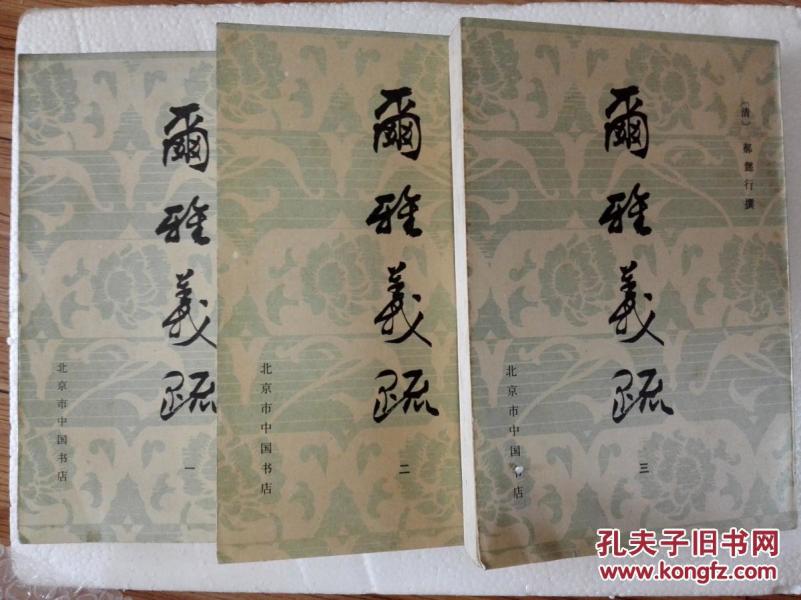 爾雅義疏
一
北京市中国书店
爾雅義疏
二
北京市中国书店
〔清〕郝懿行撰
爾雅義疏
三
北京市中国书店
孔夫子旧书网
www.kongfz.com